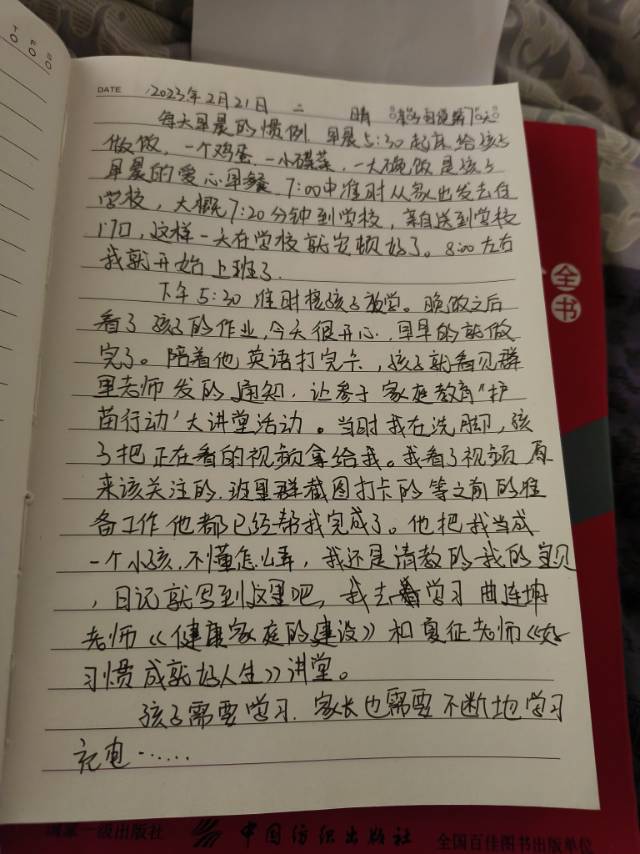 DATE 2023年2月21日 二 晴 第70天
每天早晨的惯例 早晨5:30起床给孩子
做饭,一个鸡蛋,一小碟菜,一大碗饭是孩子
早晨的爱心早餐 7:00中准时从家出发去往
学校,大概7:20分钟到学校,亲自送到学校
门口,这样一天在学校就安顿好了。8:00左右
我就开始上班了.
下午5:30准时接孩子放学。晚饭之后
看了孩子的作业,今天很开心,早早的就做
完了。陪着他英语打完卡,孩子就看见群
里老师发的通知,让参于家庭教育"护
苗行动'大讲堂活动。当时我在洗脚,孩
子把正在看的视频拿给我。我看了视频原
来该关注的,班里群截图打卡的等之前的准
备工作他都已经帮我完成了。他把我当成
一个小孩,不懂怎么弄,我还是请教的我的宝贝
,日记就写到这里吧,我去学习曲连坤
老师《健康家庭的建设》和夏征老师《好
习惯成就好人生》讲堂。
孩子需要学习.家长也需要不断地学习
充电……
全
书
国家一级出版社 中国纺织出版社 全国百佳图书出版单位